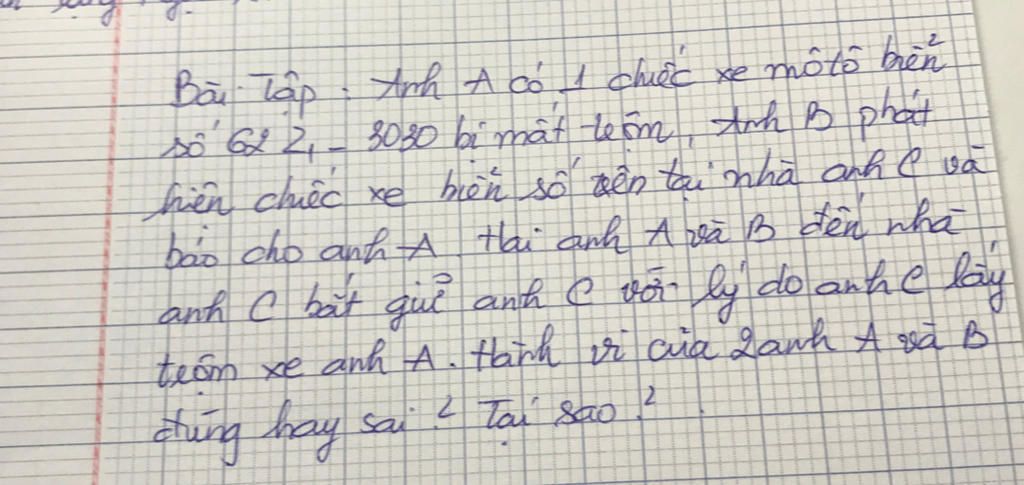 Bài Tập : Anh A có 1 chiếc xe môtô biển
số 62 Z1 - 3030 bị mất trộm, Anh B phát
hiện chiếc xe biển số trên tại nhà anh C và
báo cho anh A. Hai anh A và B đến nhà
anh C bắt giữ anh C với lý do anh C lấy
trộm xe anh A. Hành vi của 2 anh A và B
đúng hay sai ? Tại sao ?